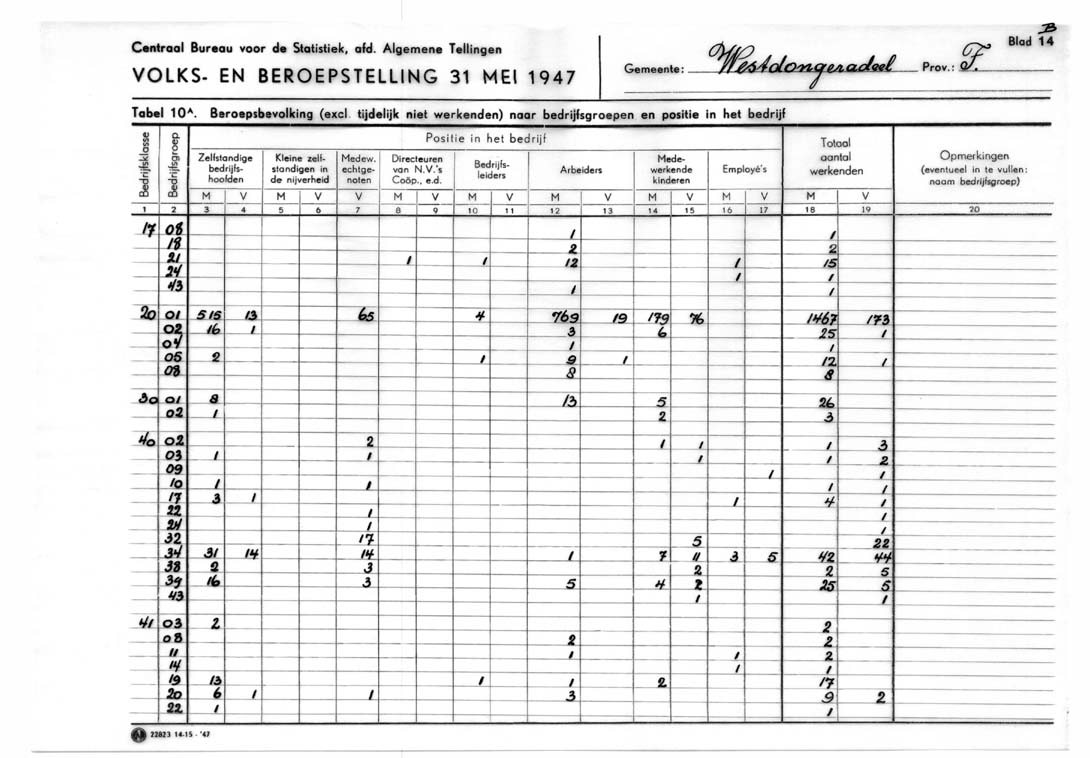 B
Blad 14
Centraal Bureau voor de Statistiek, afd. Algemene Tellingen
VOLKS- EN BEROEPSTELLING 31 MEI 1947
Gemeente: Westdongeradeel Prov.: F.
Tabel 10A. Beroepsbevolking (excl. tijdelijk niet werkenden) naar bedrijfsgroepen en positie in het bedrijf
Bedrijfsklasse
Bedrijfsgroep
Positie in het bedrijf
Zelfstandige bedrijfs-hoofden
Kleine zelf-standigen in de nijverheid
Medew. echtge-noten
Directeuren van N.V.'s Coöp., e.d.
Bedrijfs-leiders
Arbeiders
Mede-werkende kinderen
Employé's
Totaal aantal werkenden
Opmerkingen (eventueel in te vullen: naam bedrijfsgroep)
M V M V V M V M V M V M V M V M V
1 2 3 4 5 6 7 8 9 10 11 12 13 14 15 16 17 18 19 20
17 08 1 1
18 2 2
21 1 1 12 1 15
24 1 1
43 1 1
20 01 515 13 65 4 769 19 179 76 1467 173
02 16 1 3 6 25 1
04 1 1
05 2 1 9 1 12 1
08 8 8
30 01 8 13 5 26
02 1 2 3
40 02 2 1 1 1 3
03 1 1 1 1 2
09 1 1
10 1 1 1 1
17 3 1 1 4 1
22 1 1
24 1 1
32 17 5 22
34 31 14 14 1 7 11 3 5 42 44
38 2 3 2 2 5
39 16 3 5 4 2 25 5
43 1 1
41 03 2 2
08 2 2
11 1 1 2
14 1 1
19 13 1 1 2 17
20 6 1 1 3 9 2
22 1 1
22823 14-15 - '47